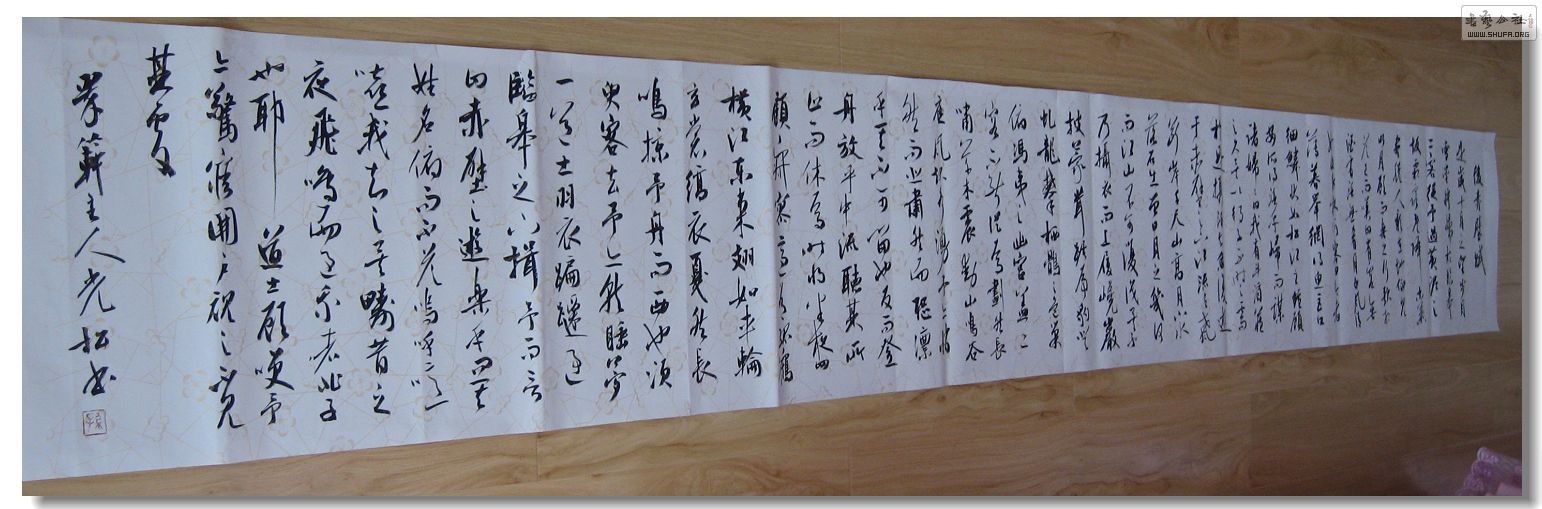 後赤壁賦
是歲十月之望步自
雪堂將歸于臨皋
二客從予過黃泥之
坂霜露既降木葉
盡脫人影在地仰見
明月顧而樂之行歌相答
已而嘆曰有客無酒
有酒無肴月白風清
如此良夜何客曰今者
薄暮舉網得魚巨口
細鱗狀如松江之鱸顧
安所得酒乎歸而謀
諸婦婦曰我有斗酒藏
之久矣以待子不時之需
於是攜酒與魚復遊
于赤壁之下江流有聲
斷岸千尺山高月小水
落石出曾日月之幾何
而江山不可復識矣予
乃攝衣而上履巉巖
披蒙茸踞虎豹登
虬龍攀栖鶻之危巢
俯馮夷之幽宮蓋二
客不能從焉劃然長
嘯草木震動山鳴谷
應風起水涌予亦悄
然而悲肅然而恐凜
乎其不可留也反而登
舟放乎中流聽其所
止而休焉時夜將半四
顧寂寥適有孤鶴
橫江東來翅如車輪
玄裳縞衣戛然長
鳴掠予舟而西也須
臾客去予亦就睡夢
一道士羽衣蹁躚過
臨皋之下揖予而言
曰赤壁之遊樂乎問其
姓名俯而不答嗚呼噫
嘻我知之矣疇昔之
夜飛鳴而過我者非子
也耶道士顧笑予
亦驚寤開戶視之不見
其處
主人光松書
書藝公社
WWW.SHUFA.ORG